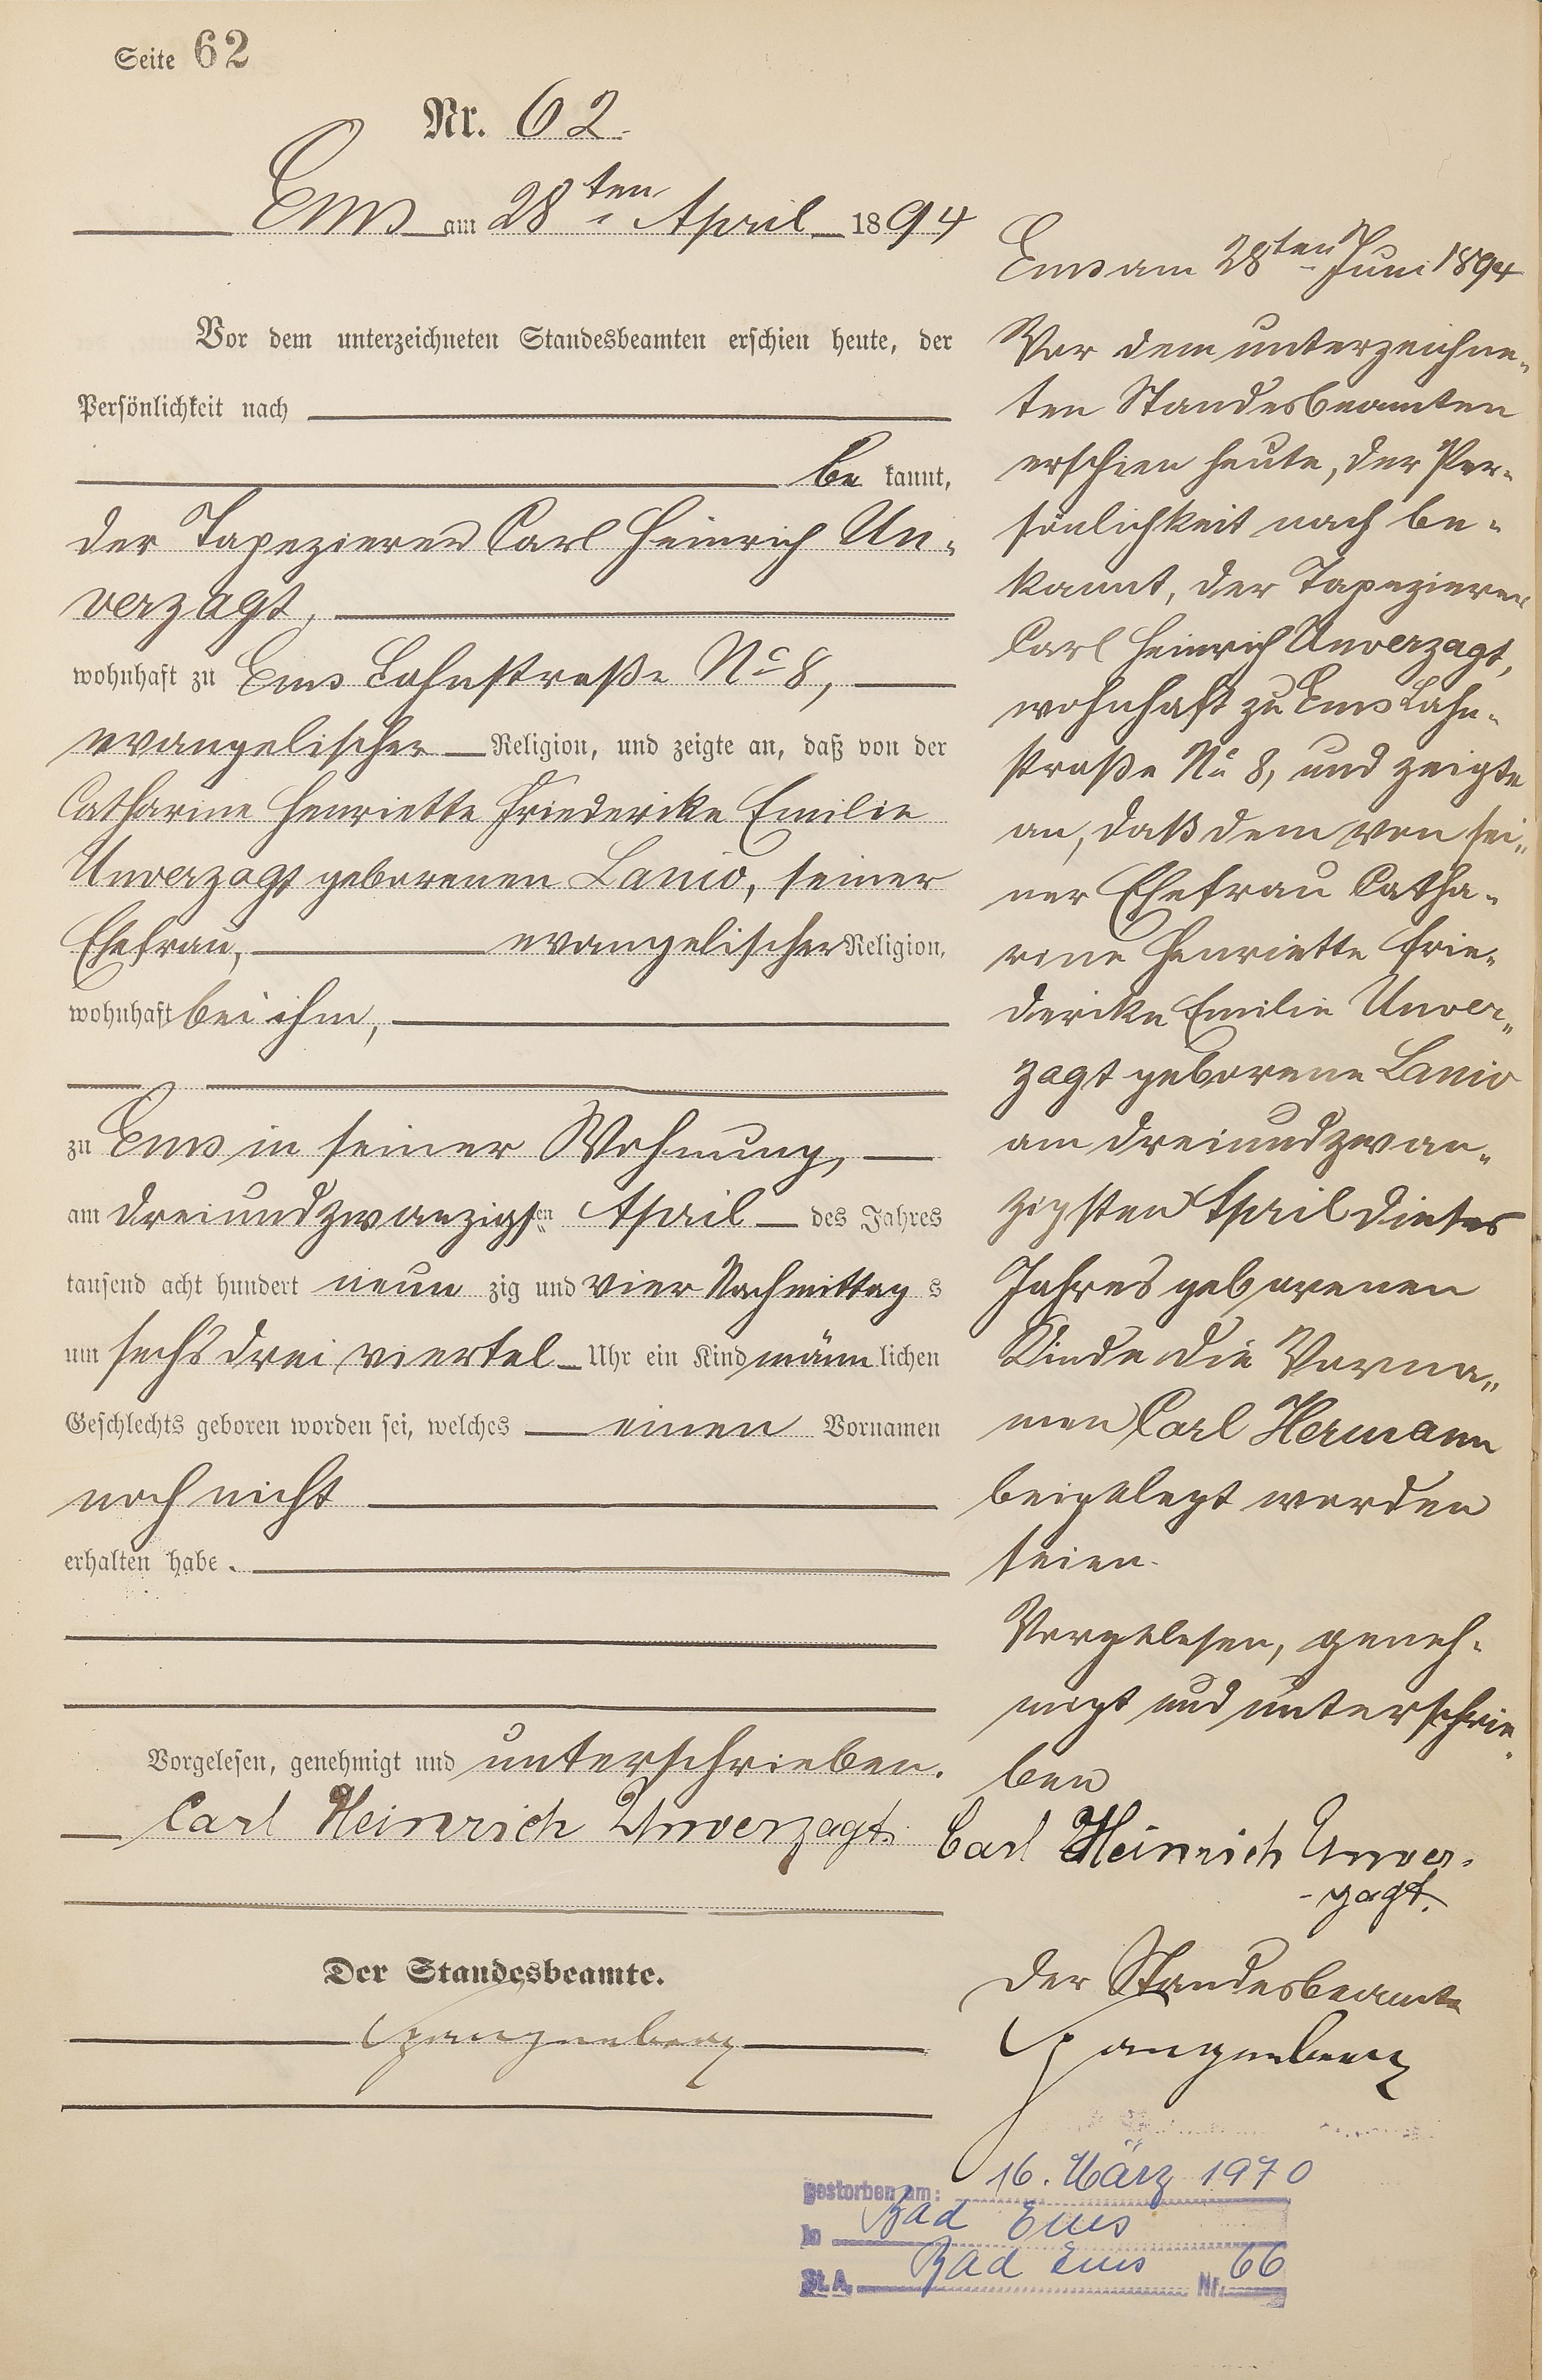 Seite 62
Nr. 62.
Ems am 28ten April 1894
Vor dem unterzeichneten Standesbeamten erschien heute, der
Persönlichkeit nach
be kannt,
der Tapezierer Carl Heinrich Un-
verzagt,
wohnhaft zu Ems Lahnstraße No 8,
evangelischer Religion, und zeigte an, daß von der
Catharine Henriette Friederike Emilie
Unverzagt geborenen Lanio, seiner
Ehefrau, evangelischer Religion,
wohnhaft bei ihm,
zu Ems in seiner Wohnung,
am dreiundzwanzigsten April des Jahres
tausend acht hundert neun zig und vier Nachmittag s
um sechs drei viertel Uhr ein Kind männ lichen
Geschlechts geboren worden sei, welches einen Vornamen
noch nicht
erhalten habe.
Vorgelesen, genehmigt und unterschrieben.
Carl Heinrich Unverzagt.
Der Standesbeamte.
Spangenberg
Ems am 28ten Juni 1894
Vor dem unterzeichne-
ten Standesbeamten
erschien heute, der Per-
sönlichkeit nach be-
kannt, der Tapezierer
Carl Heinrich Unverzagt,
wohnhaft zu Ems Lahn-
straße No 8, und zeigte
an, daß dem von sei-
ner Ehefrau Catha-
rine Henriette Frie-
derike Emilie Unver-
zagt geborene Lanio
am dreiundzwan-
zigsten April dieses
Jahres geborenen
Kinde die Vorna-
men Carl Hermann
beigelegt worden
seien.
Vorgelesen, geneh-
migt und unterschrie-
ben
Carl Heinrich Unver-
-zagt.
Der Standesbeamte
Spangenberg
gestorben am: 16. März 1970
in Bad Ems
St. A. Bad Ems Nr. 66